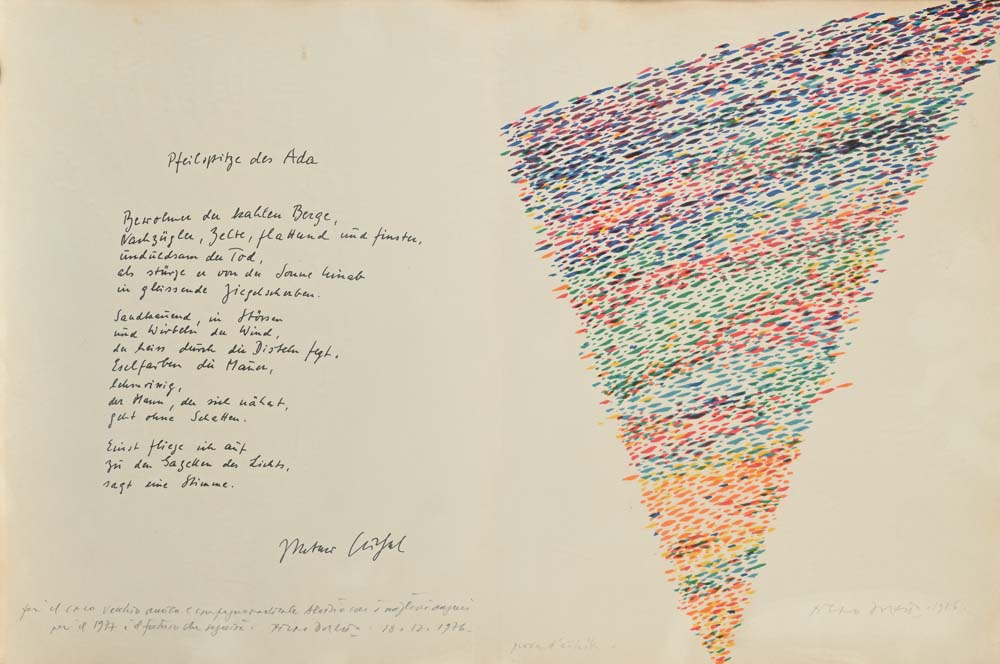 Pfeilspitze des Ada
Bewohner der kahlen Berge,
Nachzügler, Zelte, flatternd und finster,
unduldsam der Tod,
als stürze er von der Sonne hinab
in gleissende Ziegelscherben.
Sandkauend, in Stössen
und Wirbeln der Wind,
der heiss durch die Disteln fegt.
Eselfarben die Mauer,
lehmrissig,
der Mann, der sich nähert,
geht ohne Schatten.
Einst fliege ich auf
zu den Gazellen des Lichts,
sagt eine Stimme.
per il caro vecchio amico e i migliori auguri
per il 1977 e il futuro che seguirà. Piero Dorazio. 18.12.1976.
prova d'artista
Piero Dorazio. 1976.